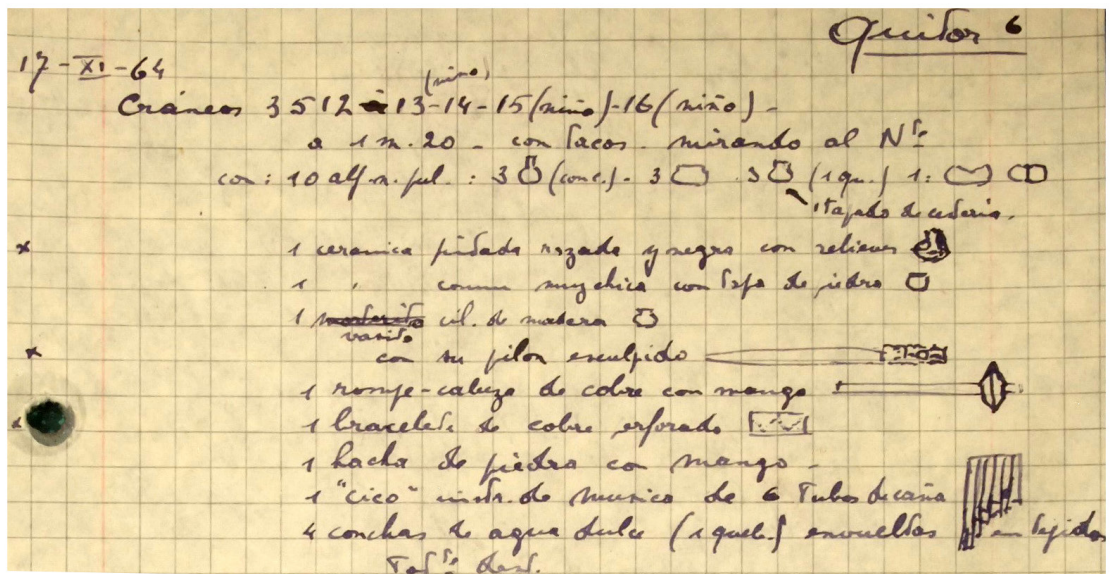 Quitor 6
17-XI-64
(niño)
Cráneos 3512 a 13-14-15(niño)-16(niño)-
a 1 m. 20 - con tacos. mirando al Nte
con: 10 alf. n. pul. : 3 (conc.) - 3 3 (1 qu.) 1:
1 tapado de cesteria.
x 1 ceramica pintada rozada y negra con relieves
1 " comun muy chica con tapa de piedra
1 morterito cil. de madera
vasito
x con su pilon esculpido
1 rompe-cabeza de cobre con mango
x 1 bracelete de cobre erforado
1 hacha de piedra con mango -
1 "cico" instr. de musica de 6 Tubos de caña
4 conchas de agua dulce (1 queb.) envueltas en tejidos